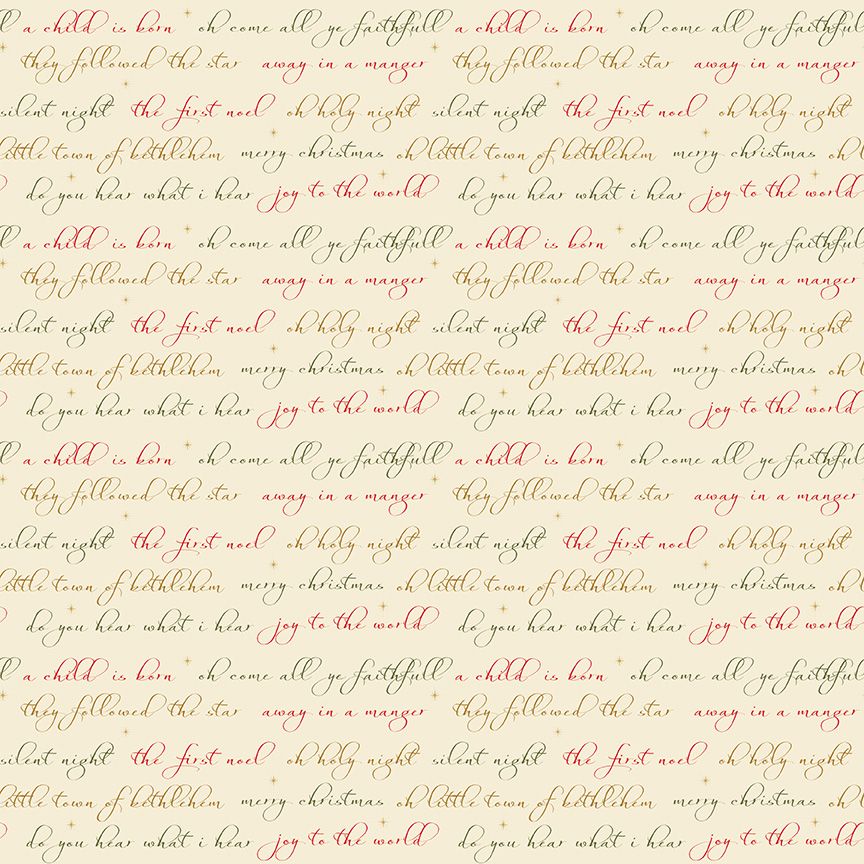 l a child is born oh come all ye faithfull a child is born oh come all ye faithfull
they followed the star away in a manger they followed the star away in a manger
silent night the first noel oh holy night silent night the first noel oh holy night
little town of bethlehem merry christmas oh little town of bethlehem merry christmas oh l
do you hear what i hear joy to the world do you hear what i hear joy to the world
l a child is born oh come all ye faithfull a child is born oh come all ye faithfull
they followed the star away in a manger they followed the star away in a manger
silent night the first noel oh holy night silent night the first noel oh holy night
little town of bethlehem merry christmas oh little town of bethlehem merry christmas oh l
do you hear what i hear joy to the world do you hear what i hear joy to the world
l a child is born oh come all ye faithfull a child is born oh come all ye faithfull
they followed the star away in a manger they followed the star away in a manger
silent night the first noel oh holy night silent night the first noel oh holy night
little town of bethlehem merry christmas oh little town of bethlehem merry christmas oh l
do you hear what i hear joy to the world do you hear what i hear joy to the world
l a child is born oh come all ye faithfull a child is born oh come all ye faithfull
they followed the star away in a manger they followed the star away in a manger
silent night the first noel oh holy night silent night the first noel oh holy night
little town of bethlehem merry christmas oh little town of bethlehem merry christmas oh l
do you hear what i hear joy to the world do you hear what i hear joy to the world